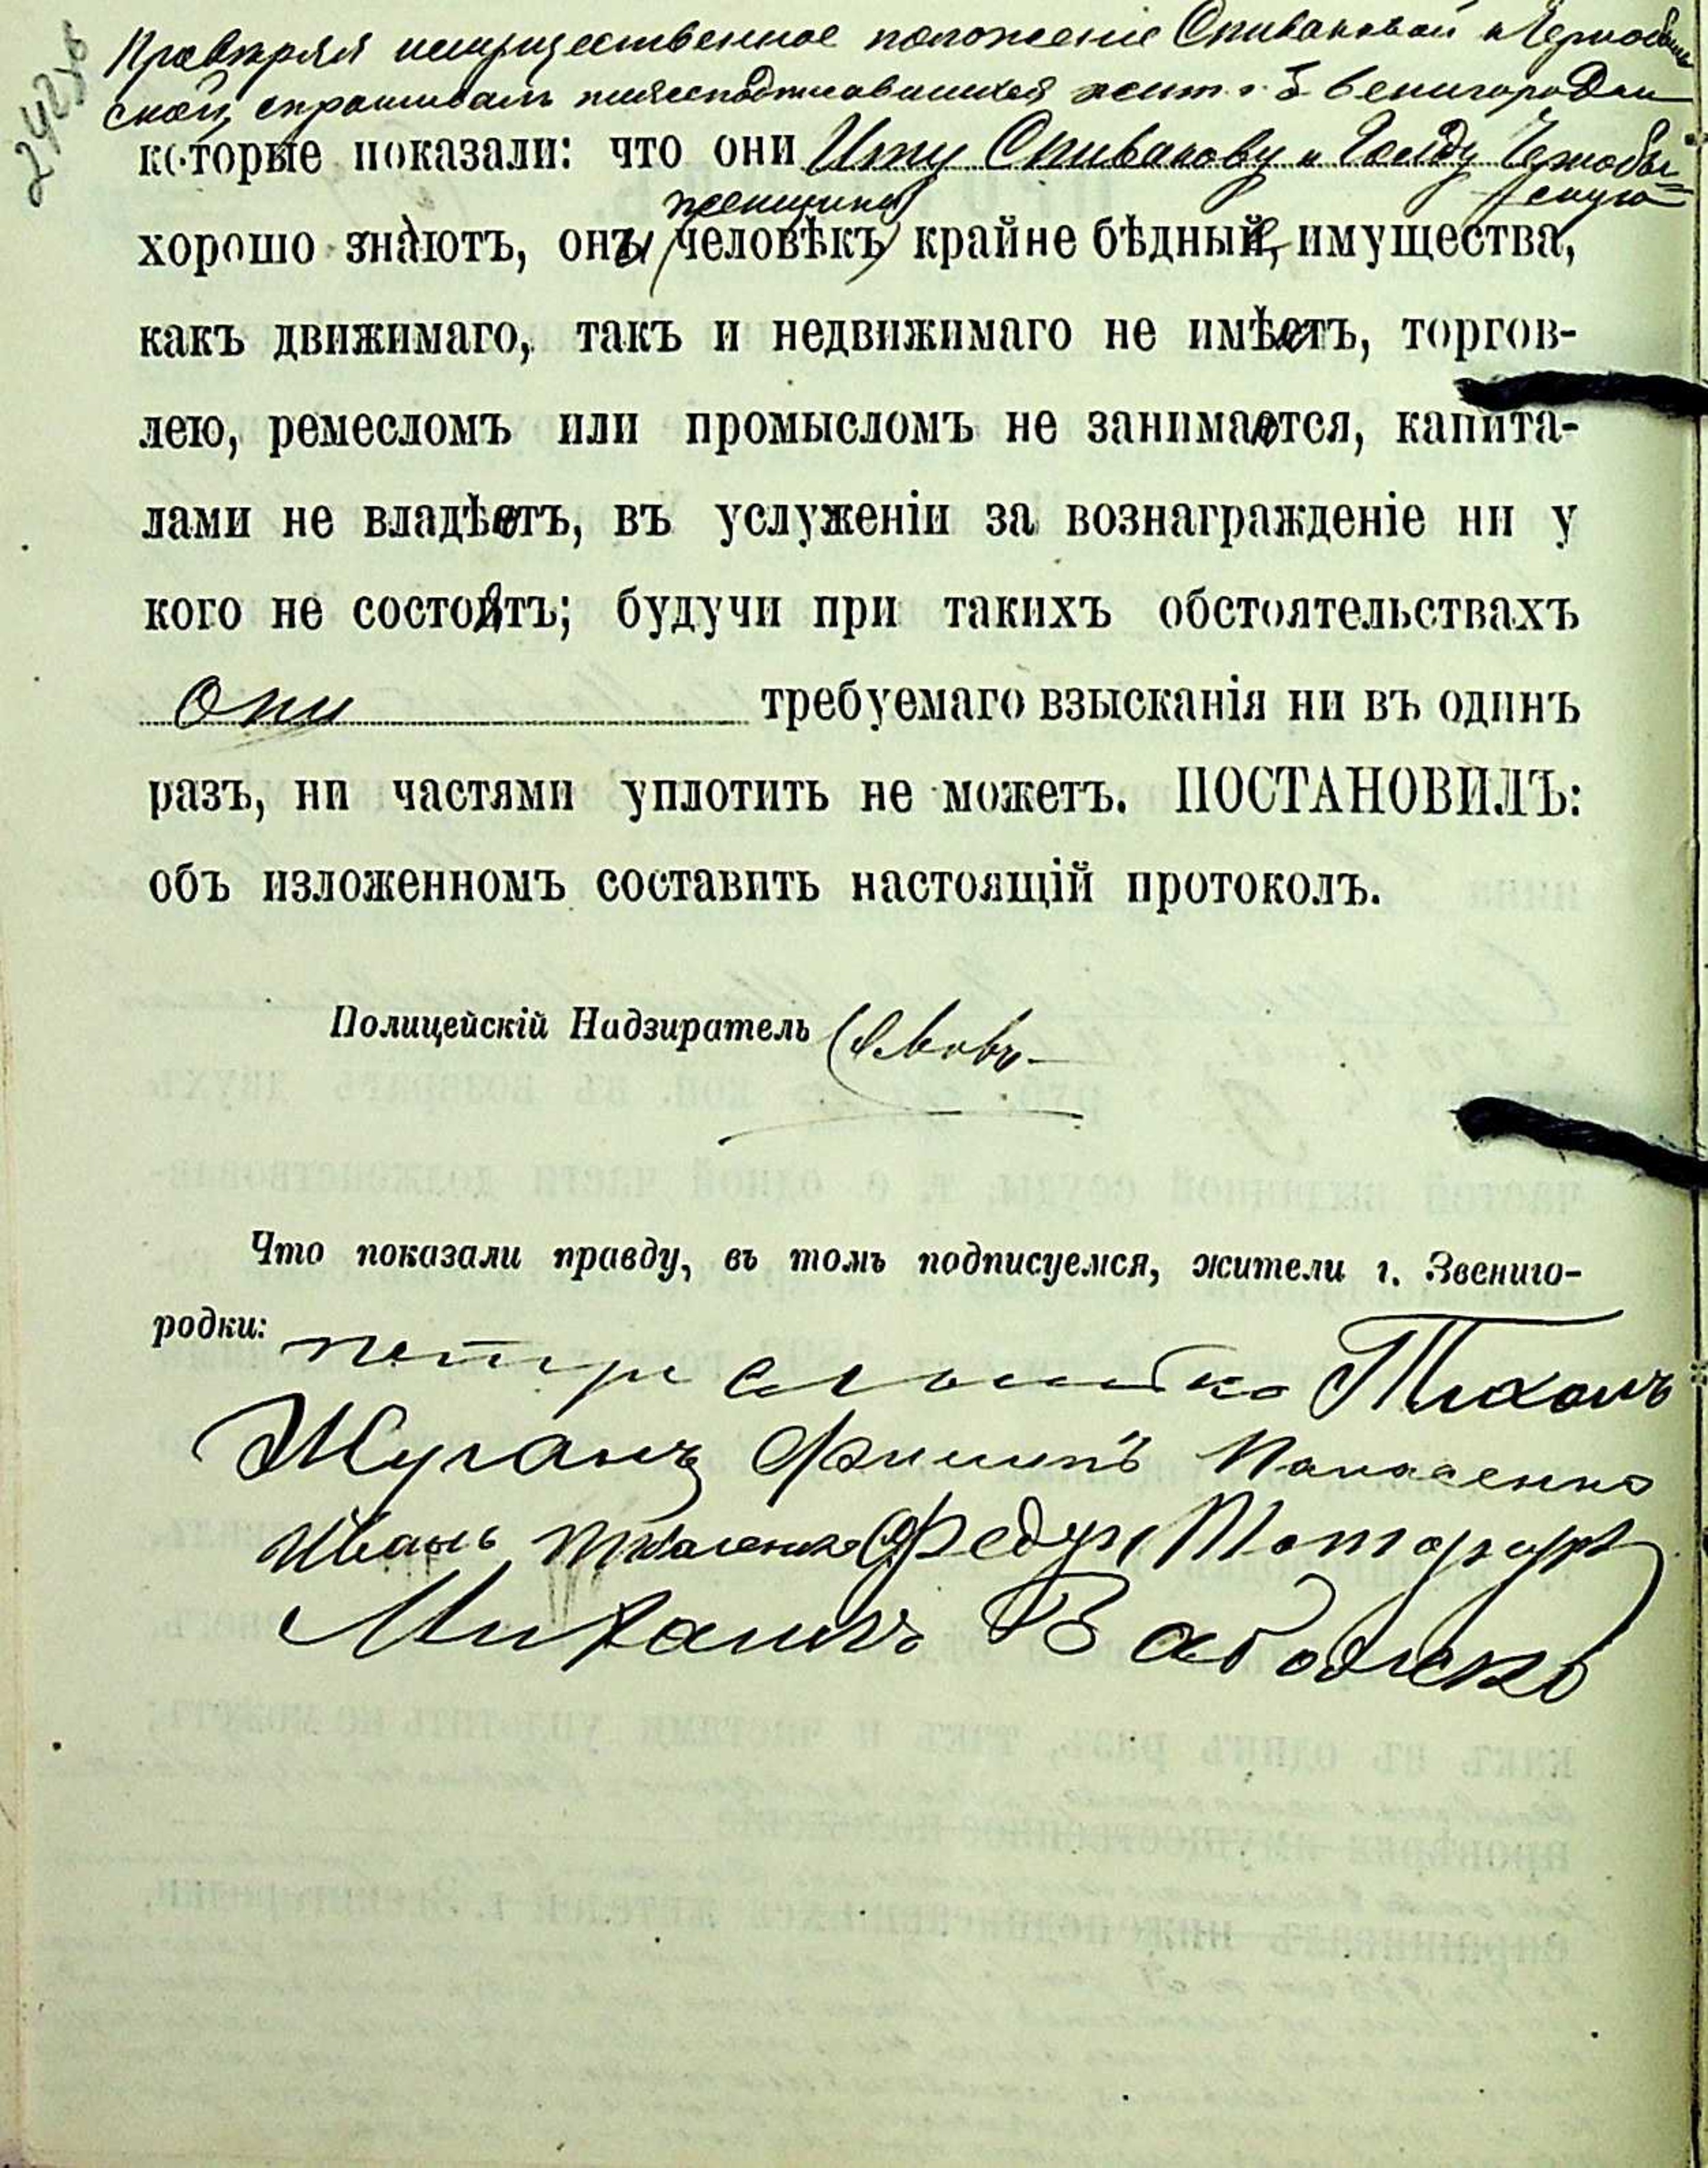 Провѣряя имущественное положеніе Спиваковой и Чернобыль
ской, спрашивалъ нижеподписавшихся жит. г. Звенигородки
которые показали: что они Иту Спивакову и Гольду Чернобыль
скую
женщины
хорошо знаютъ, оны человѣкъ крайне бѣдные, имущества,
какъ движимаго, такъ и недвижимаго не имѣютъ, торгов-
лею, ремесломъ или промысломъ не занимаются, капита-
лами не владѣютъ, въ услуженіи за вознагражденіе ни у
кого не состоятъ; будучи при такихъ обстоятельствахъ
Они требуемаго взысканія ни въ одинъ
разъ, ни частями уплотить не можетъ. ПОСТАНОВИЛЪ:
объ изложенномъ составить настоящій протоколъ.
Полицейскій Надзиратель
Что показали правду, въ томъ подписуемся, жители г. Звениго-
родки:
петръ Тихонъ
Жуганъ Филипъ Панасенко
Иванъ Ткаченко Федур
Михаилъ